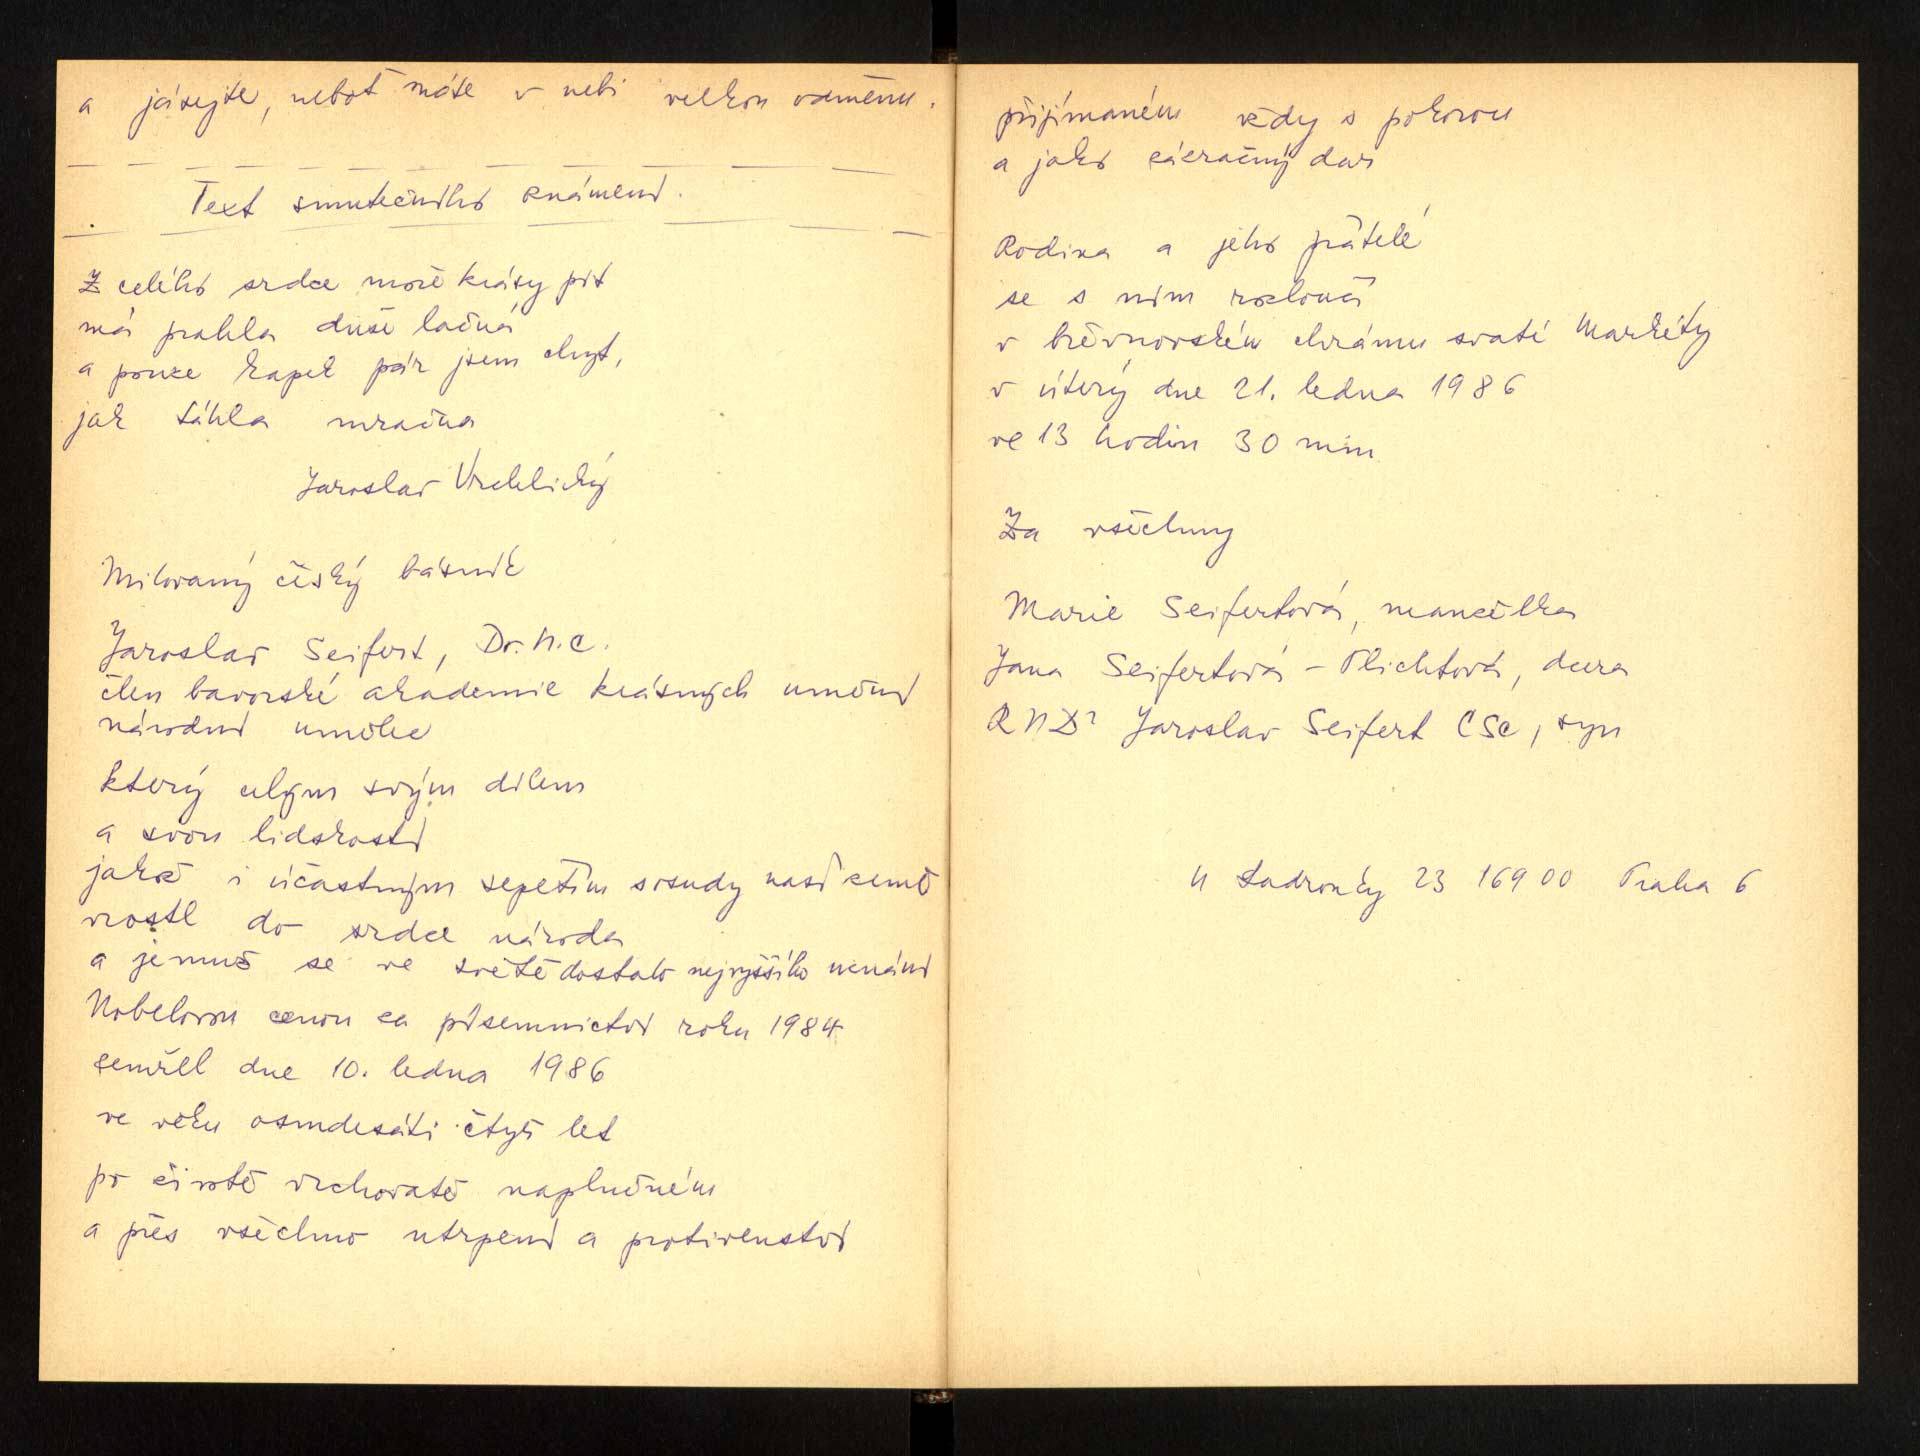 a jásejte, neboť máte v nebi velkou odměnu.
Text smutečního známení.
Z celého srdce moře krásy pít
má prahla duše lačná
a pouze kapek pár jsem chyt,
jak táhla mračna
Jaroslav Vrchlický
Milovaný český básník
Jaroslav Seifert, Dr. h. c.
člen bavorské akademie krásných umění
národní umělec
který celým svým dílem
a svou lidskostí
jakož i účastným sepětím s osudy naší země
vrostl do srdce národa
a jemuž se ve světě dostalo nejvyššího uznání
Nobelovou cenou za písemnictví roku 1984
zemřel dne 10. ledna 1986
ve věku osmdesáti čtyř let
po životě vrchovatě naplněném
a přes všechno utrpení a protivenství
přijímaném vždy s pokorou
a jako zázračný dar
Rodina a jeho přátelé
se s ním rozloučí
v břevnovském chrámu svaté Markéty
v úterý dne 21. ledna 1986
ve 13 hodin 30 min
Za všechny
Marie Seifertová, manželka
Jana Seifertová - Plichtová, dcera
RNDr Jaroslav Seifert CSc, syn
U Ladronky 23 169 00 Praha 6